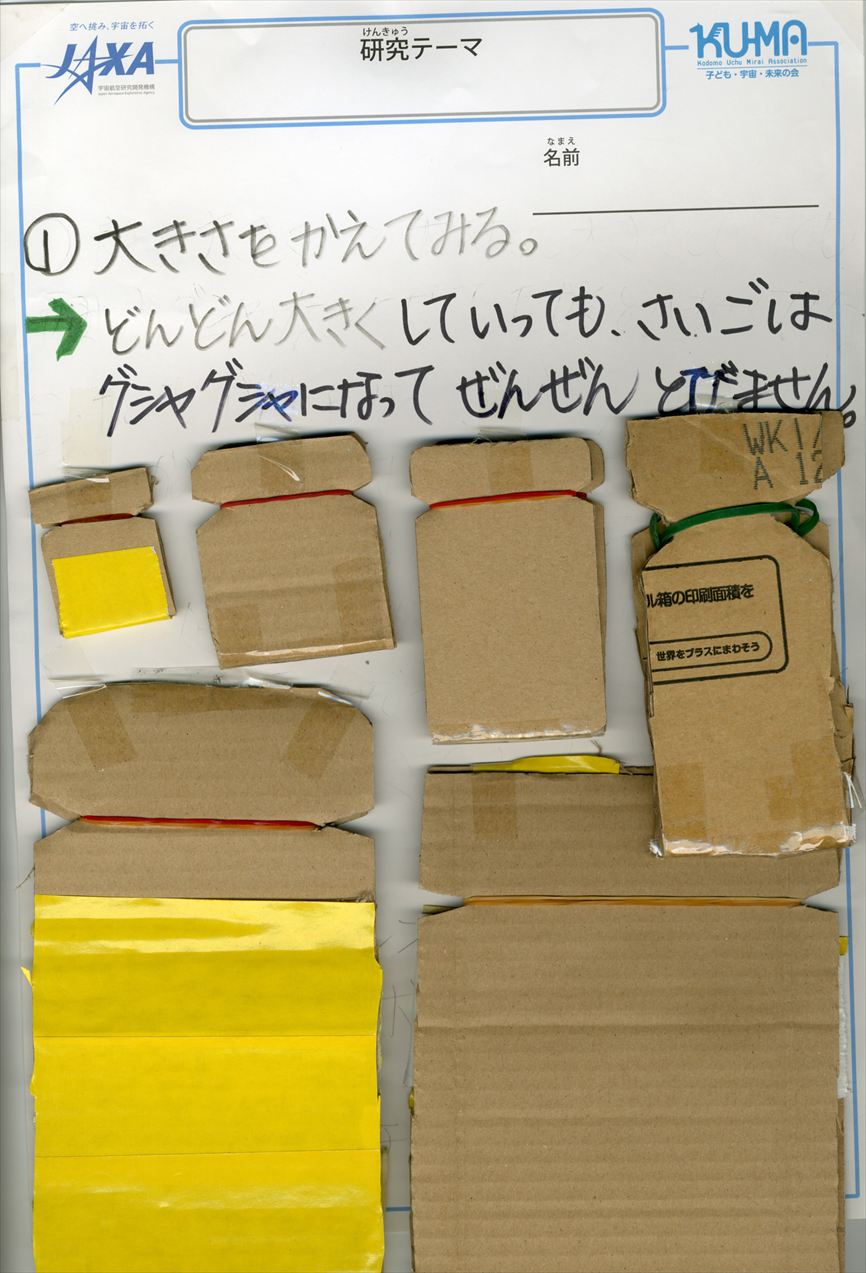 空へ挑み、宇宙を拓く
JAXA
宇宙航空研究開発機構
Japan Aerospace Exploration Agency
けんきゅう
研究テーマ
KU-MA
Kodomo Uchu Mirai Association
子ども・宇宙・未来の会
なまえ
名前
① 大きさをかえてみる。
→ どんどん大きくしていっても、さいごは
グシャグシャになって ぜんぜん とびません。
WK17
A 12
ル箱の印刷面積を
世界をプラスにまわそう